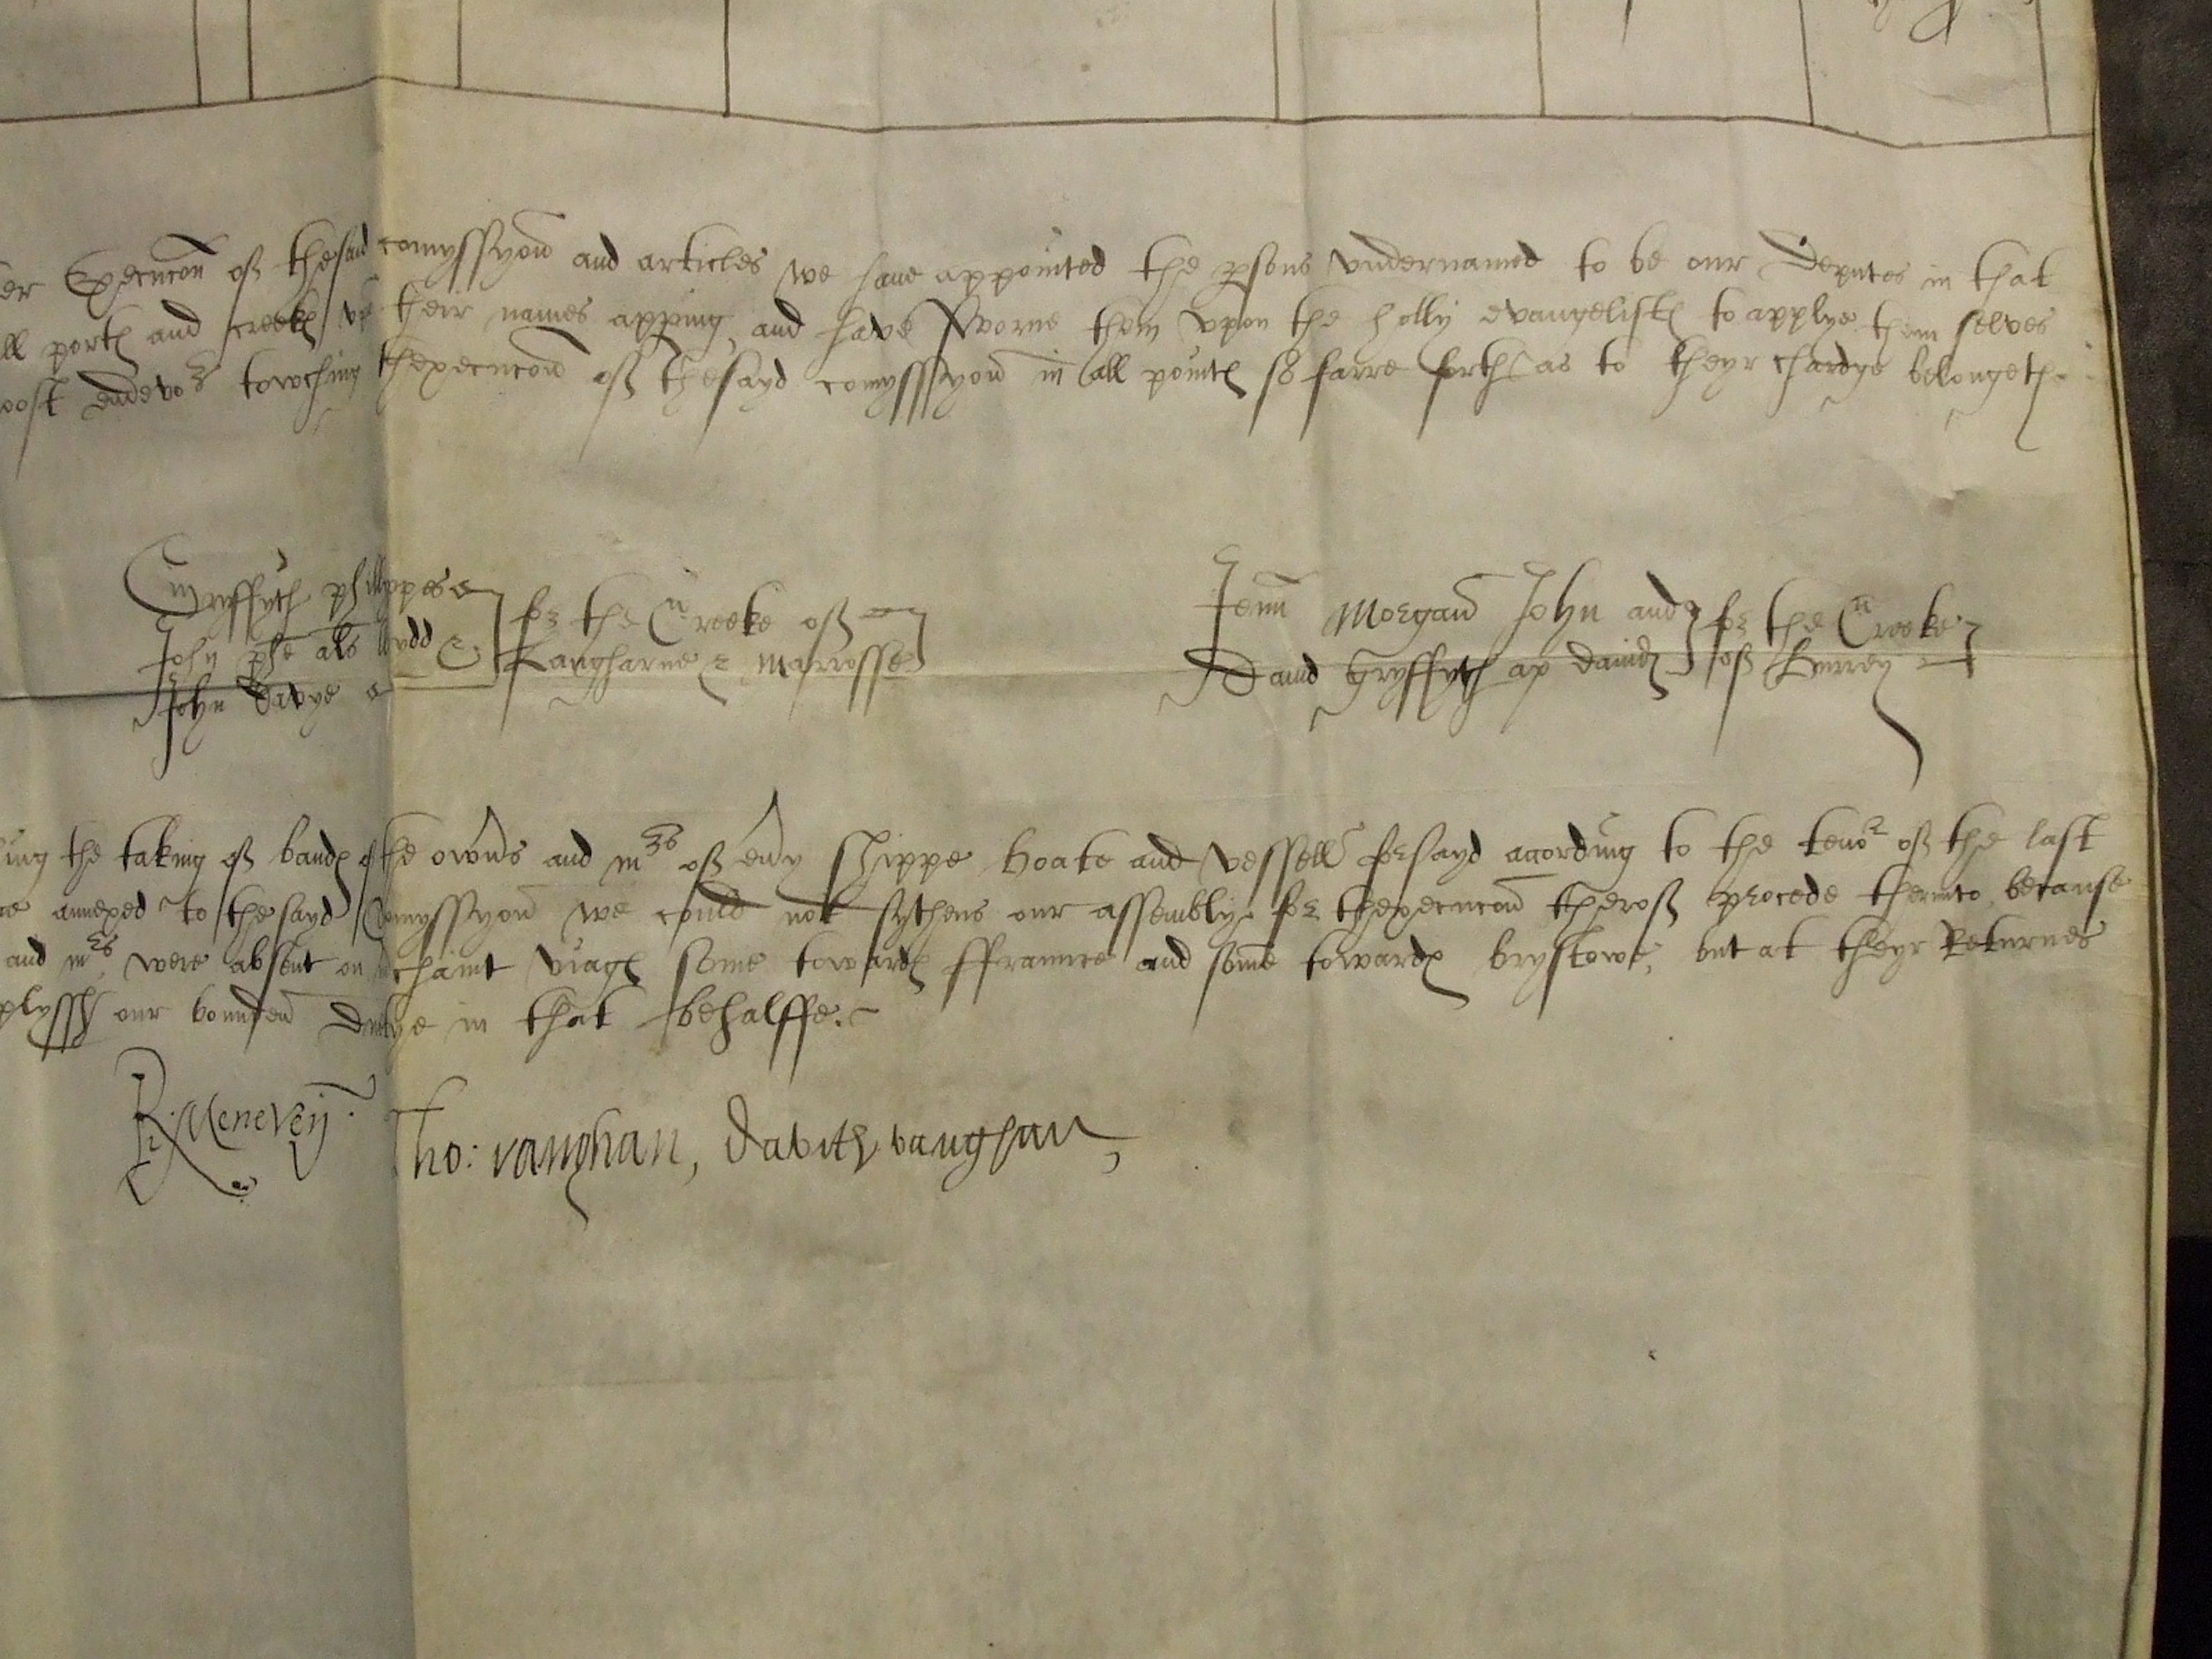 er Execucon off thesaid comyssyon and articles we have appointed the psons undernamed to be our Deputes in that
ll portes and creekes their names apping, and have sworne them upon the holly evangelistes to applye them selves
oost endevor towching thexecucon off thesayd comyssyon in all pointes so farre forth as to theyr chardge belongeth.
Gryffyth phillippes
John phe als lludd
John davye
for the Creeke off
Laugharne & Marrosse
Jenn Morgan John and
David Gryffyth ap david
for the Creeke
off Burrey
ing the taking off bandes of the owners and mrs off every shippe boate and vessell forsayd according to the tenor off the last
annexed to thesayd Comyssyon we could not sythens our assembly for thexecucon theroff procede therunto because
and mrs were absent on mchaint viages some towardes ffraunce and some towardes brystowe, but at theyr Returnes
plyssh our bounden dutye in that behalffe.
R. Meneveñ. Tho: vaughan, davith vaughan,